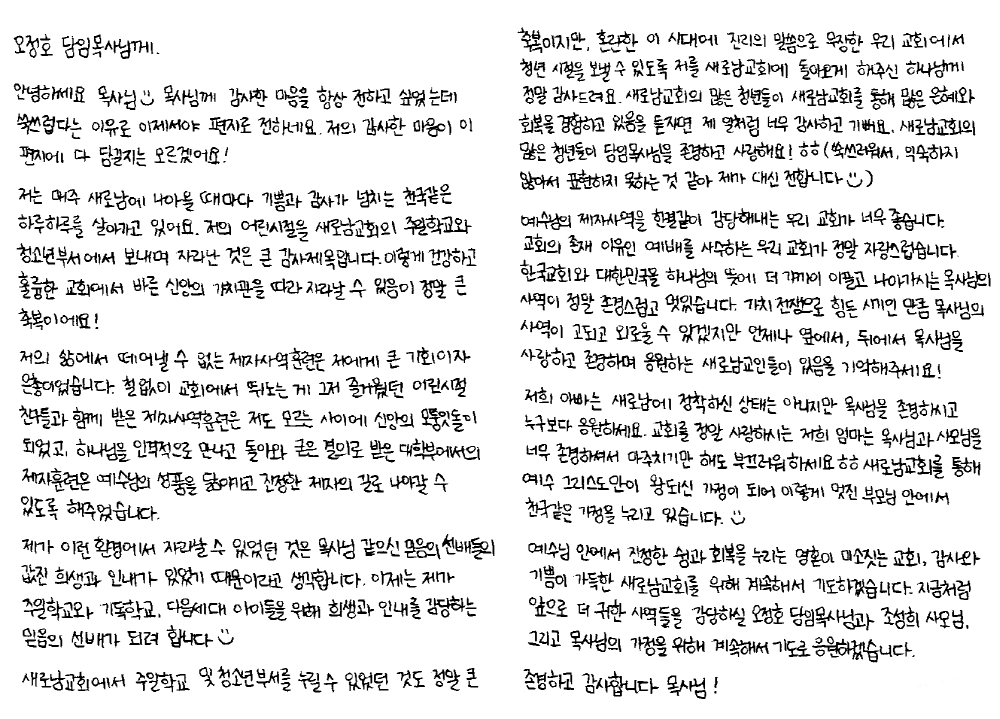 오정호 담임목사님께.
안녕하세요 목사님 목사님께 감사한 마음을 항상 전하고 싶었는데
쑥쓰럽다는 이유로 이제서야 편지로 전하네요. 저의 감사한 마음이 이
편지에 다 담길지는 모르겠어요!
저는 매주 새로남에 나아올 때마다 기쁨과 감사가 넘치는 천국같은
하루하루를 살아가고 있어요. 저의 어린시절을 새로남교회의 주일학교와
청소년부서에서 보내며 자라난 것은 큰 감사제목입니다. 이렇게 건강하고
훌륭한 교회에서 바른 신앙의 가치관을 따라 자라날 수 있음이 정말 큰
축복이에요!
저의 삶에서 떼어낼 수 없는 제자사역훈련은 저에게 큰 기회이자
은총이었습니다. 철없이 교회에서 뛰노는 게 그저 즐거웠던 어린시절
친구들과 함께 받은 제자사역훈련은 저도 모르는 사이에 신앙의 모퉁잇돌이
되었고, 하나님을 인격적으로 만나고 돌아와 굳은 결의로 받은 대학부에서의
제자훈련은 예수님의 성품을 닮아가고 진정한 제자의 길로 나아갈 수
있도록 해주었습니다.
제가 이런 환경에서 자라날 수 있었던 것은 목사님 같으신 믿음의 선배들의
값진 희생과 인내가 있었기 때문이라고 생각합니다. 이제는 제가
주일학교와 기독학교, 다음세대 아이들을 위해 희생과 인내를 감당하는
믿음의 선배가 되려 합니다
새로남교회에서 주일학교 및 청소년부서를 누릴 수 있었던 것도 정말 큰
축복이지만, 혼란한 이 시대에 진리의 말씀으로 무장한 우리 교회에서
청년 시절을 보낼 수 있도록 저를 새로남교회에 돌아오게 해주신 하나님께
정말 감사드려요. 새로남교회의 많은 청년들이 새로남교회를 통해 많은 은혜와
회복을 경험하고 있음을 듣자면 제 일처럼 너무 감사하고 기뻐요. 새로남교회의
많은 청년들이 담임목사님을 존경하고 사랑해요! ㅎㅎ (쑥쓰러워서, 익숙하지
않아서 표현하지 못하는 것 같아 제가 대신 전합니다 )
예수님의 제자사역을 한결같이 감당해내는 우리 교회가 너무 좋습니다.
교회의 존재 이유인 예배를 사수하는 우리 교회가 정말 자랑스럽습니다.
한국교회와 대한민국을 하나님의 뜻에 더 가까이 이끌고 나아가시는 목사님의
사역이 정말 존경스럽고 멋있습니다. 가치 전쟁으로 힘든 시기인 만큼 목사님의
사역이 고되고 외로울 수 있겠지만 언제나 옆에서, 뒤에서 목사님을
사랑하고 존경하며 응원하는 새로남교인들이 있음을 기억해주세요!
저희 아빠는 새로남에 정착하신 상태는 아니지만 목사님을 존경하시고
누구보다 응원하세요. 교회를 정말 사랑하시는 저희 엄마는 목사님과 사모님을
너무 존경하셔서 마주치기만 해도 부끄러워하세요 ㅎㅎ 새로남교회를 통해
예수 그리스도만이 왕되신 가정이 되어 이렇게 멋진 부모님 안에서
천국같은 가정을 누리고 있습니다.
예수님 안에서 진정한 쉼과 회복을 누리는 영혼이 미소짓는 교회, 감사와
기쁨이 가득한 새로남교회를 위해 계속해서 기도하겠습니다. 지금처럼
앞으로 더 귀한 사역들을 감당하실 오정호 담임목사님과 조성희 사모님,
그리고 목사님의 가정을 위해 계속해서 기도로 응원하겠습니다.
존경하고 감사합니다 목사님!